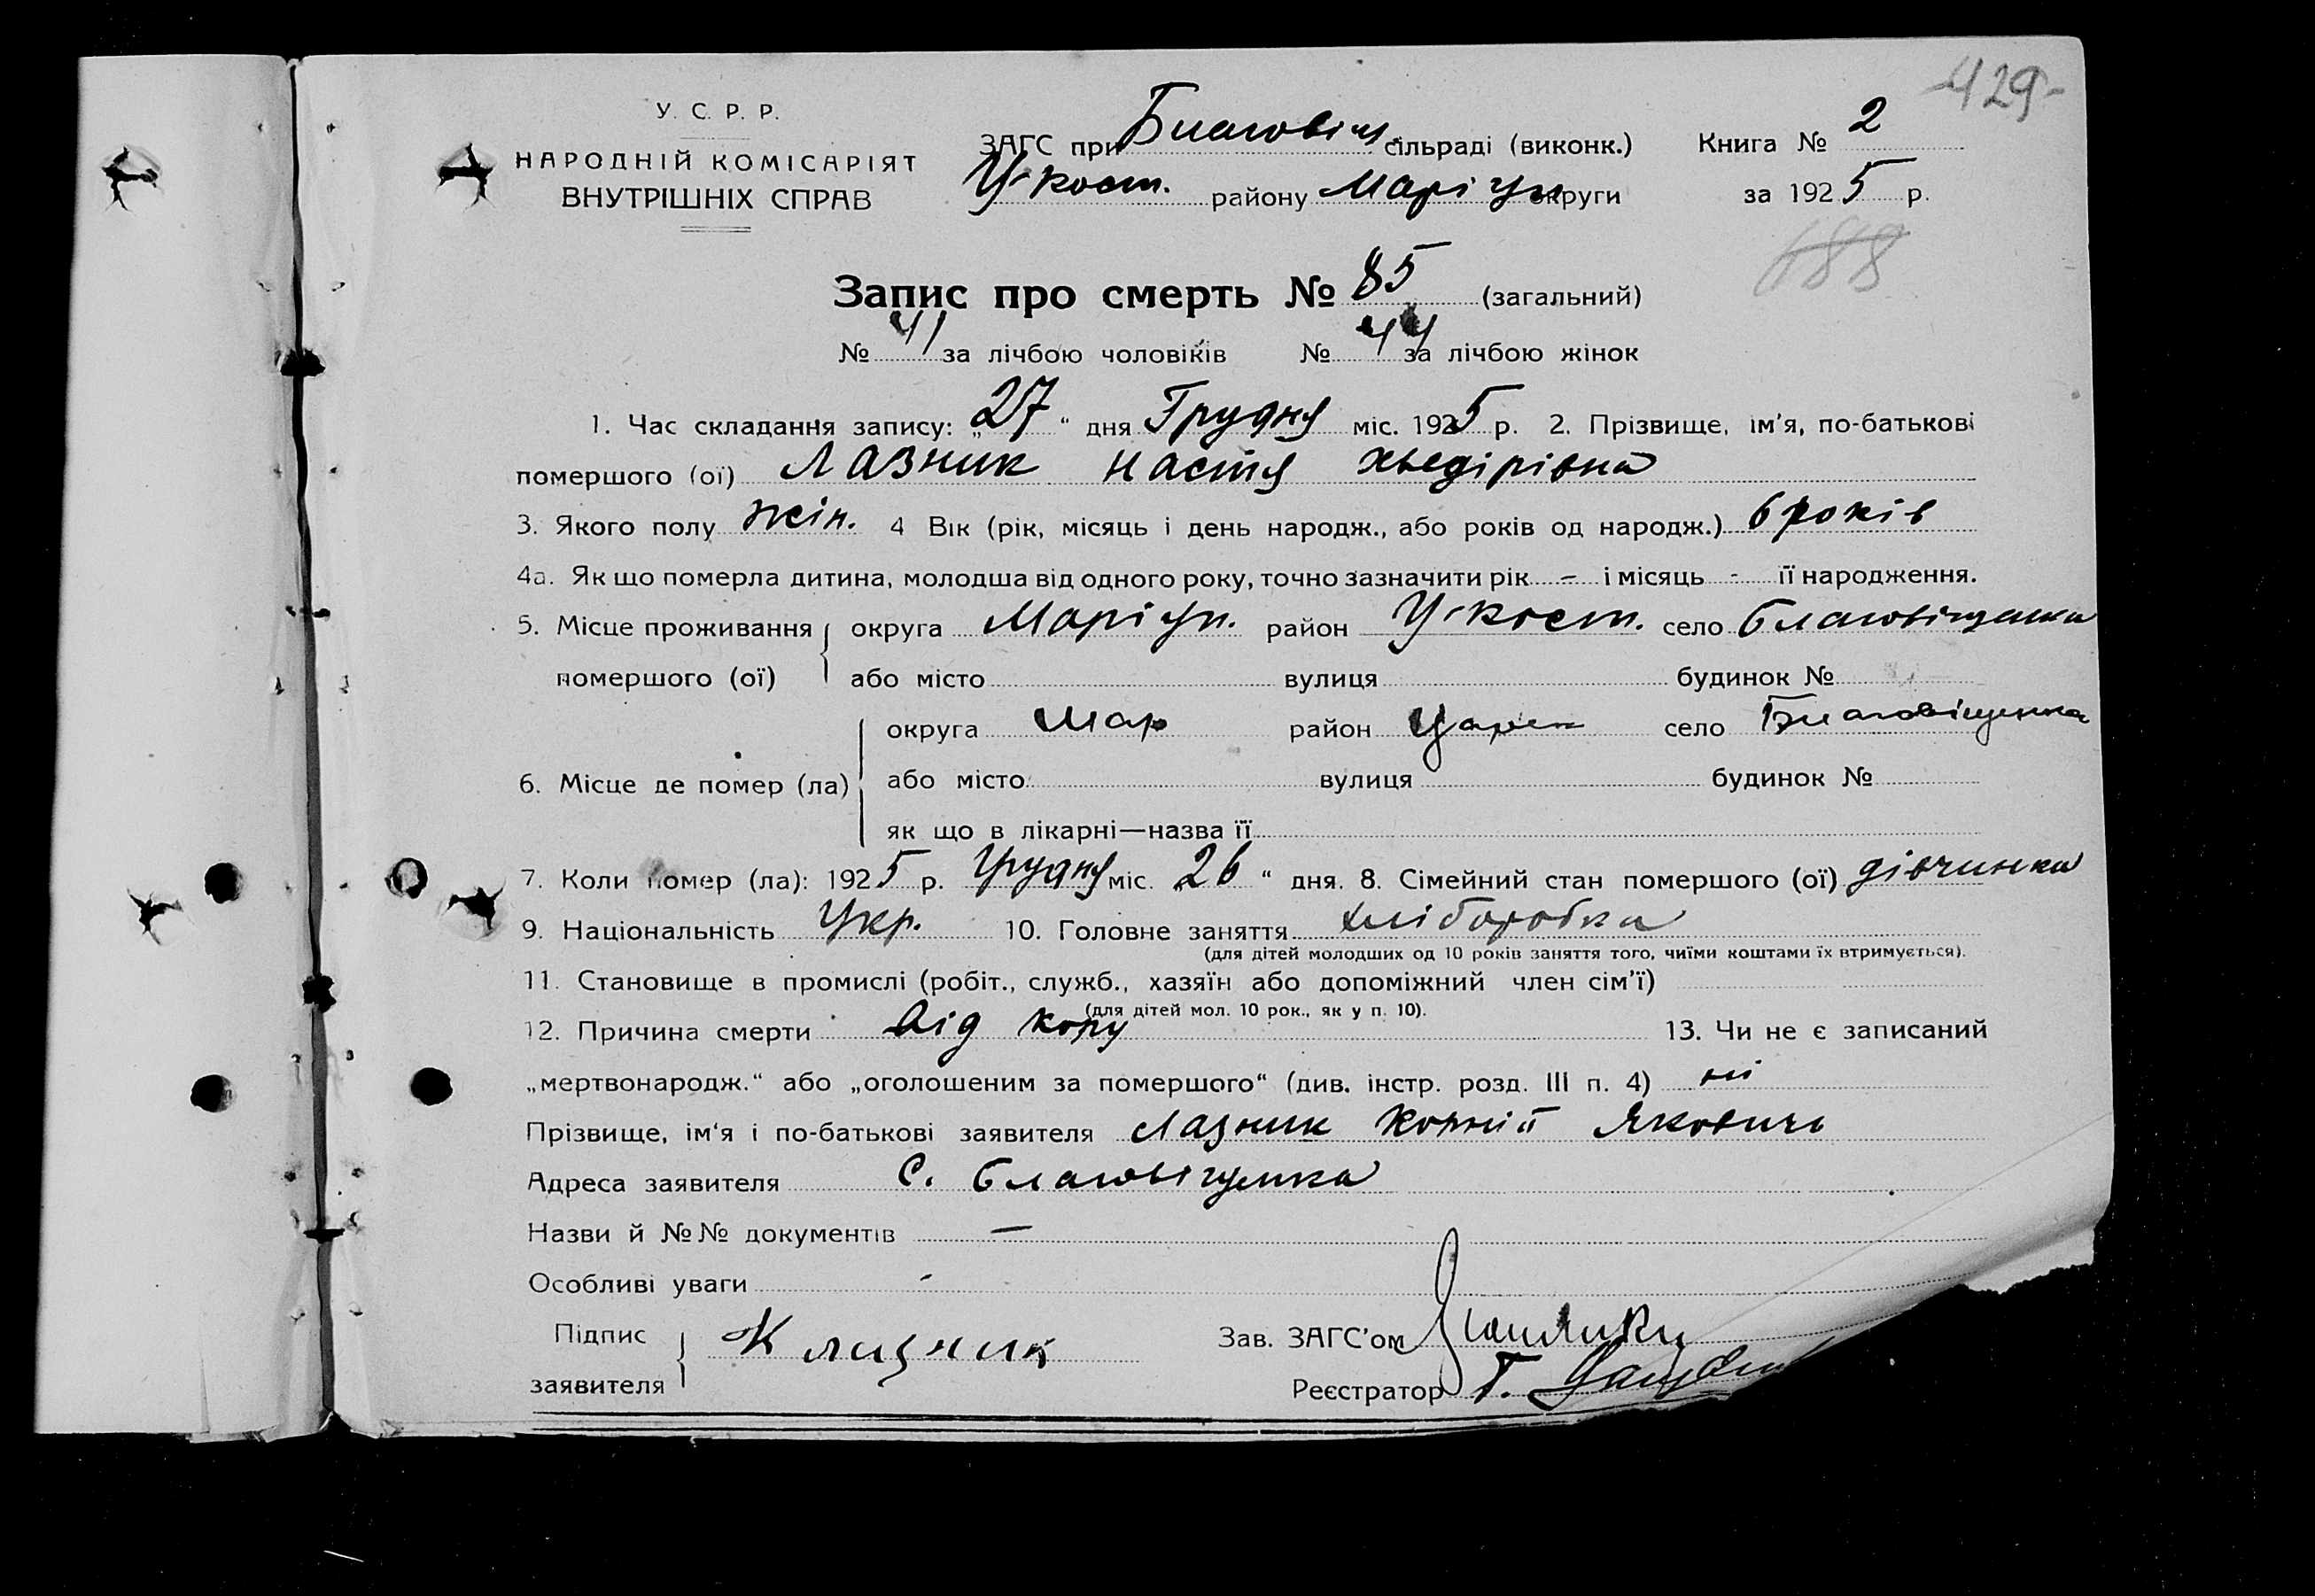 -429-
У. С. Р. Р.
НАРОДНІЙ КОМІСАРІЯТ
ВНУТРІШНІХ СПРАВ
ЗАГС при Благовіщ сільраді (виконк.) Книга № 2
Ц-Конст. району Маріуп округи за 1925 р.
688
Запис про смерть № 85 (загальний)
№ 41 за лічбою чоловіків № 44 за лічбою жінок
1. Час складання запису: „27“ дня Грудня міс. 1925 р. 2. Прізвище, ім'я, по-батькові
помершого (ої) Лазник Настя Хведірівна
3. Якого полу жін. 4 Вік (рік, місяць і день народж., або років од народж.) 6 років
4а. Як що померла дитина, молодша від одного року, точно зазначити рік - і місяць - її народження.
5. Місце проживання помершого (ої) округа Маріуп. район Ц-Конст. село Благовіщенка
або місто вулиця будинок №
6. Місце де помер (ла) округа Мар район Царек село Благовіщенка
або місто вулиця будинок №
як що в лікарні—назва її
7. Коли помер (ла): 1925 р. Грудня міс. 26 “ дня. 8. Сімейний стан помершого (ої) дівчинка
9. Національність Укр. 10. Головне заняття хліборобка
(для дітей молодших од 10 років заняття того, чиїми коштами їх втримується).
11. Становище в промислі (робіт., служб., хазяїн або допоміжний член сім'ї)
(для дітей мол. 10 рок., як у п. 10).
12. Причина смерти від кору 13. Чи не є записаний
„мертвонародж.“ або „оголошеним за помершого“ (див. інстр. розд. III п. 4) ні
Прізвище, ім'я і по-батькові заявителя Лазник Корній Якович
Адреса заявителя с. Благовіщенка
Назви й №№ документів —
Особливі уваги -
Підпис заявителя К лазник
Зав. ЗАГС'ом
Реєстратор Г.